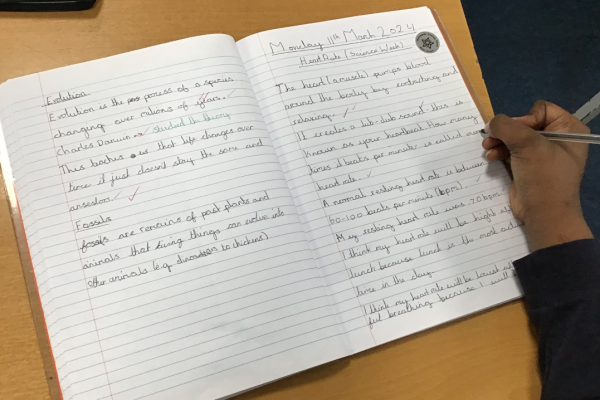 Evolution
Evolution is the process of a species
changing over milions of years.
Charles Darwin studied the theory
This is that life changes over
time it just doesn't stay the same and
ansestors
Fossils
fossils are remains of past plants and
animals that living things can evolve into
other animals (e.g dinosaurs to chickens)
Monday 11th March 2024
Heart Rate (Science Week)
The heart (a muscle) pumps blood
around the body by contracting and
relaxing.
It creates a lub-dub sound. this is
known as your heartbeat. How many
times it beats per minute is called
heart rate
A normal resting heart rate is between
60-100 beats per minute (bpm).
My resting heart rate was 70bpm
I think my heart rate will be hight
lunch because lunch is the most
time in the day.
I think my heart rate will be lowest
ful breathing because I will